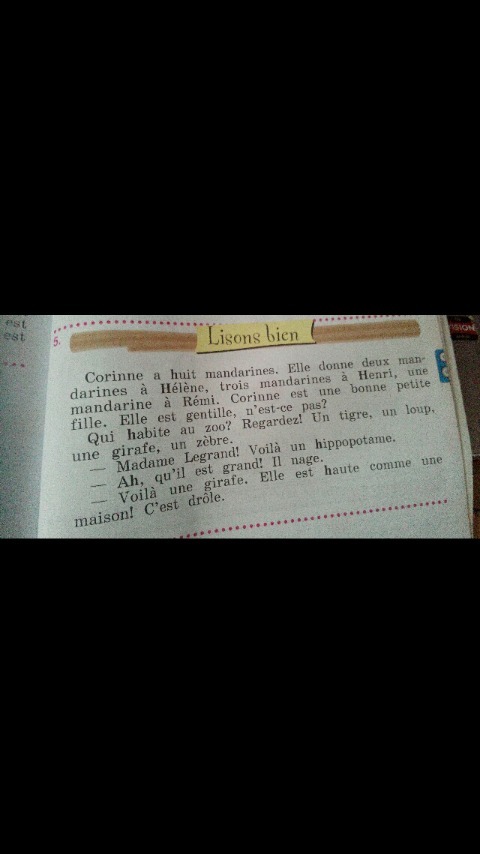 est
est
5.
Lisons bien
VISION
Corinne a huit mandarines. Elle donne deux man-
darines à Hélène, trois mandarines à Henri, une
mandarine à Rémi. Corinne est une bonne petite
fille. Elle est gentille, n'est-ce pas?
Qui habite au zoo? Regardez! Un tigre, un loup,
une girafe, un zèbre.
— Madame Legrand! Voilà un hippopotame.
— Ah, qu'il est grand! Il nage.
— Voilà une girafe. Elle est haute comme une
maison! C'est drôle.